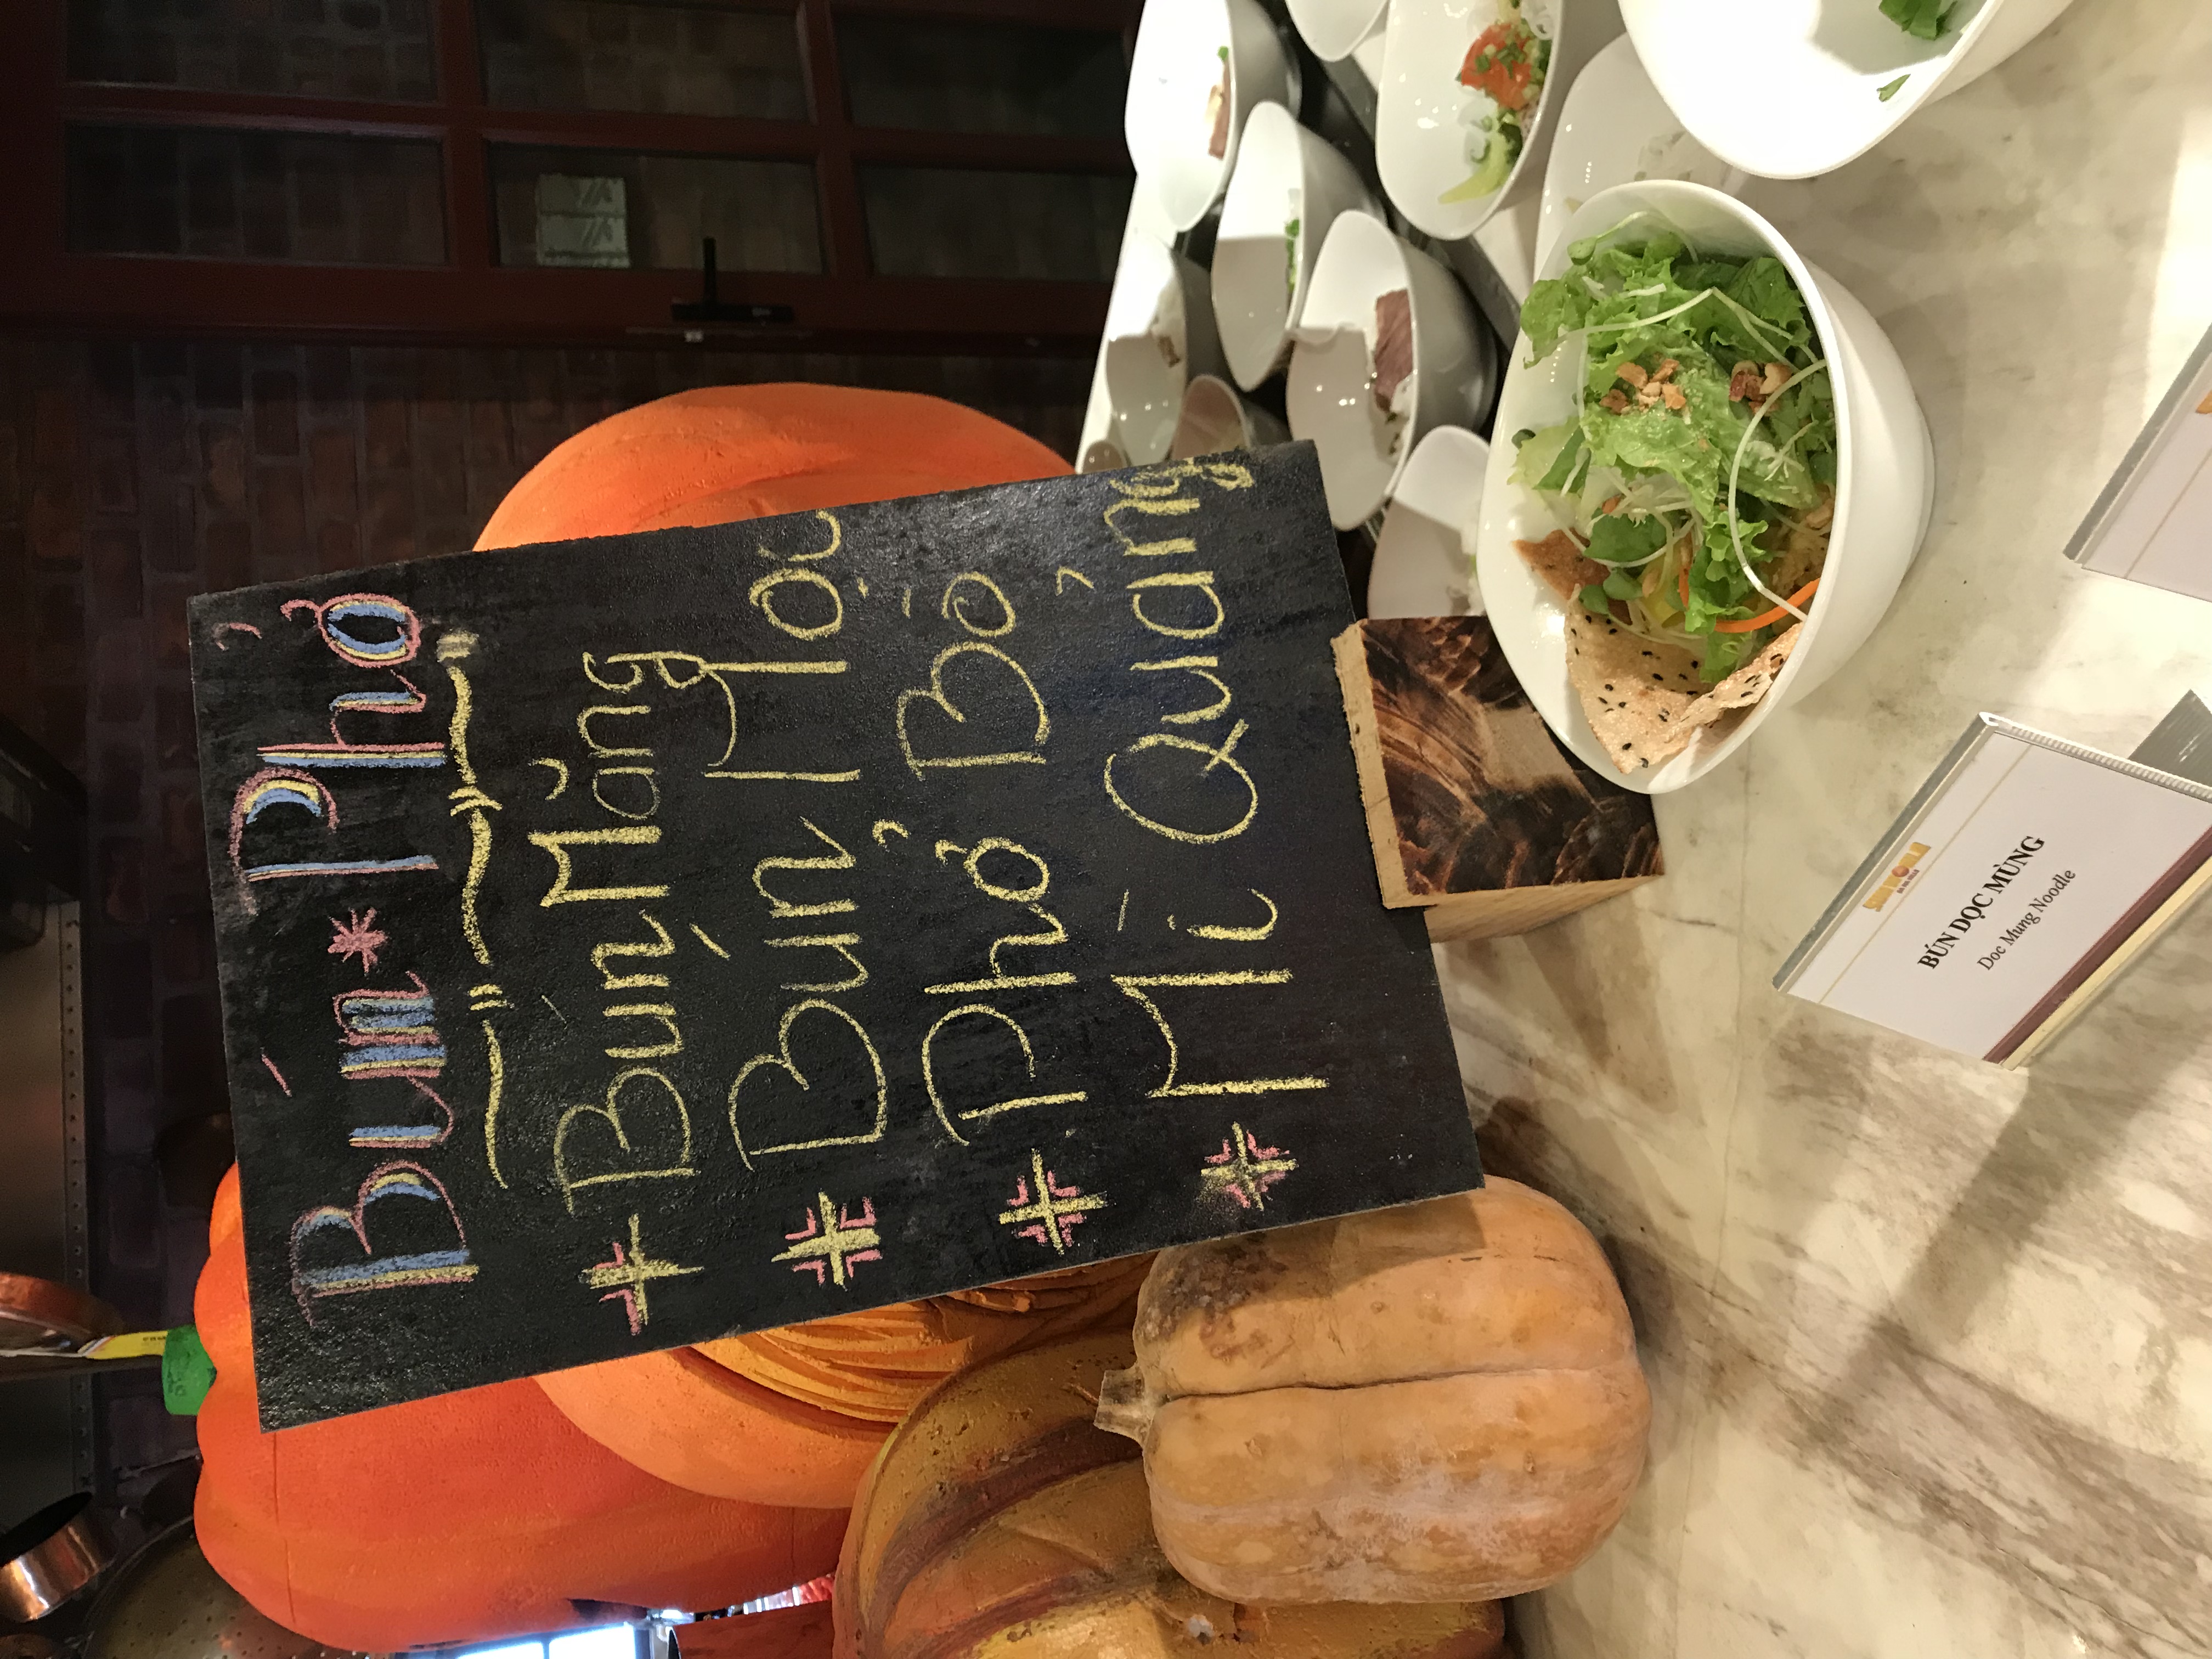 Bún * Phở
Bún Măng
Bún Mọc
Phở Bò
Mì Quảng
BÚN DỌC MÙNG
Doc Mung Noodle